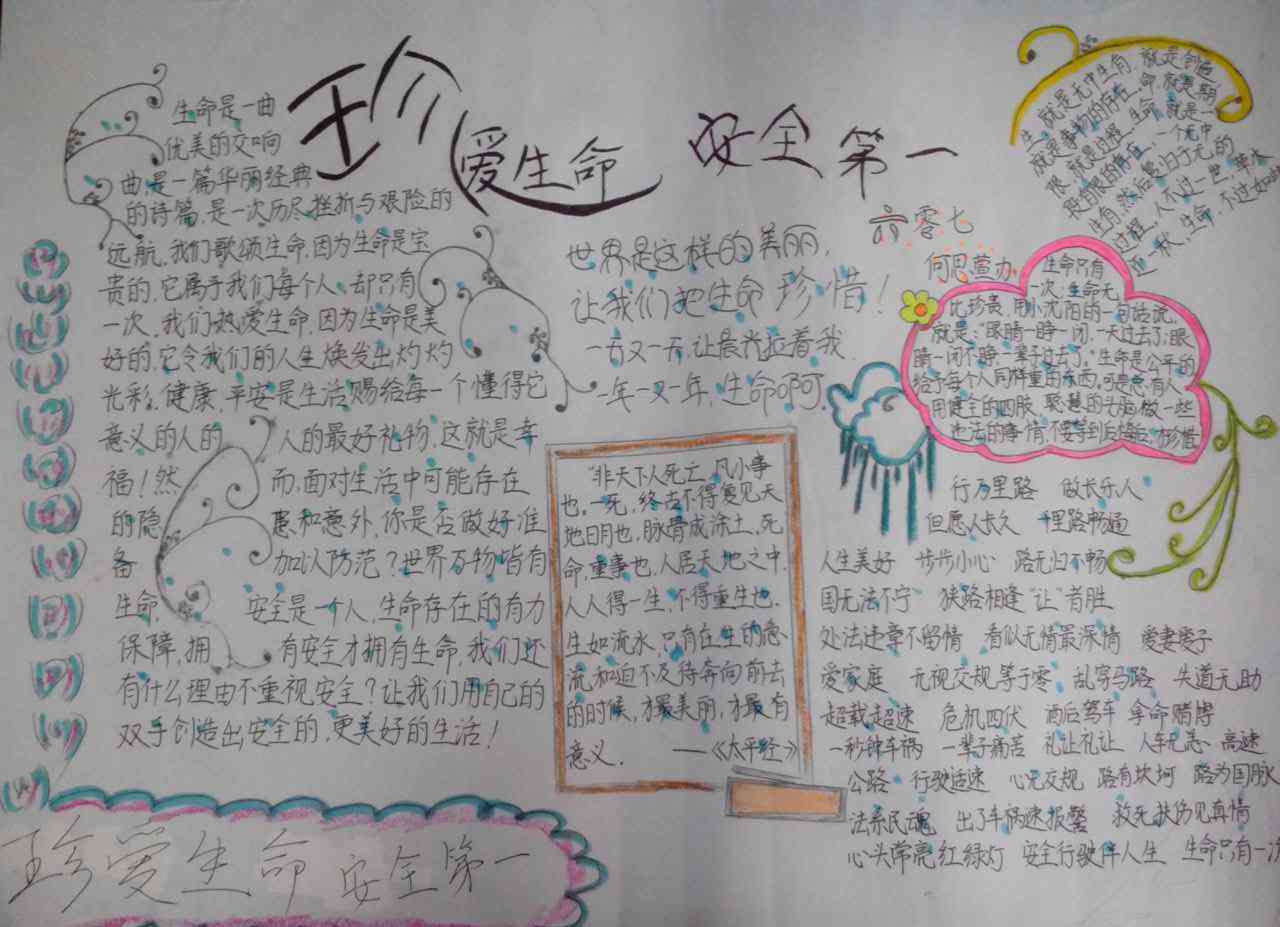 珍爱生命 安全第一
六零七
何思萱办
生命是一曲
优美的交响
曲,是一篇华丽经典
的诗篇,是一次历尽挫折与艰险的
远航,我们歌颂生命,因为生命是宝
贵的,它属于我们每个人,却只有
一次,我们热爱生命,因为生命是美
好的,它令我们的人生焕发出灼灼
光彩。健康、平安是生活赐给每一个懂得它
意义的人的 人的最好礼物,这就是幸
福!然 而,面对生活中可能存在
的隐 患和意外,你是否做好准
备 加以防范?世界万物皆有
生命, 安全是一个人,生命存在的有力
保障,拥 有安全才拥有生命,我们还
有什么理由不重视安全?让我们用自己的
双手创造出安全的,更美好的生活!
世界是这样的美丽,
让我们把生命珍惜!
一天又一天,让晨光拉着我
一年一又一年,生命啊
“非天下人死亡,凡小事
也,一死,终古不得复见天
地日月也,脉骨成涂土,死
命,重事也,人居天地之中,
人人得一生,不得重生也.
生如流水,只有在生的急
流和迫不及待奔向前去
的时候,才最美丽,才最有
意义. ——《太平经》
生,就是无中生有,就是创造
就是事物的存在,命,就是期
限,就是过程,生命,就是一
段有限的存在,一个无中
生有,然后复归于无的
过程,人不过一世,草木
一秋,生命,不过如此
生命只有
一次,生命无
比珍贵,用小沈阳的一句话说
就是:“眼睛一睁一闭,一天过去了,眼
睛一闭不睁一辈子过去了,”生命是公平的
给予每个人同样重的东西,可是总有人
用健全的四肢,聪慧的头脑做一些
违法的事情,不要等到后悔后,才珍惜
行万里路 做长乐人
但愿人长久 千里路畅通
人生美好 步步小心 路无归不畅
国无法不宁 狭路相逢“让”者胜
处法违章不留情 看似无情最深情 爱妻爱子
爱家庭 无视交规等于零 乱穿马路 失道无助
超载超速 危机四伏 酒后驾车 拿命赌博
一秒钟车祸 一辈子痛苦 礼让礼让 人车无恙 高速
公路 行驶适速 心无交规 路有坎坷 路为国脉
法系民魂 出了车祸速报警 救死扶伤见真情
心头常亮红绿灯 安全行驶伴人生 生命只有一次
珍爱生命 安全第一